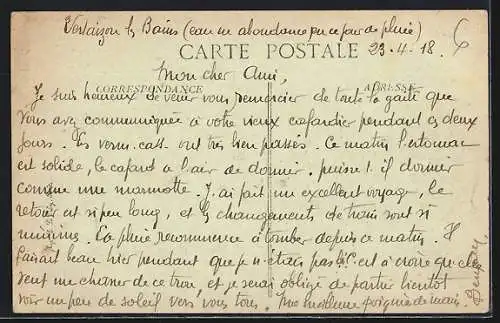 Vertaizon les Bains (eau en abondance en ce jour de pluie)
CARTE POSTALE
23.4.18. 6
Mon cher Ami,
CORRESPONDANCE ADRESSE
Je suis heureux de venir vous remercier de toute la gaîté que
vous avez communiquée à votre vieux cafardier pendant ces deux
jours. Les vermi-cass. ont très bien passés. Ce matin l'estomac
est solide, le cafard a l'air de dormir, puisse-t-il dormir
comme une marmotte. J'ai fait un excellent voyage, le
retour est si peu long, et les changements de trains sont si
minimes. La pluie recommence à tomber depuis ce matin. Il
faisait beau hier pendant que je n'étais pas là. C'est à croire que cela
sent un charme de ce trou, et je serai obligé de partir bientôt
voir un peu de soleil vers vous tous. Une meilleure poignée de main.